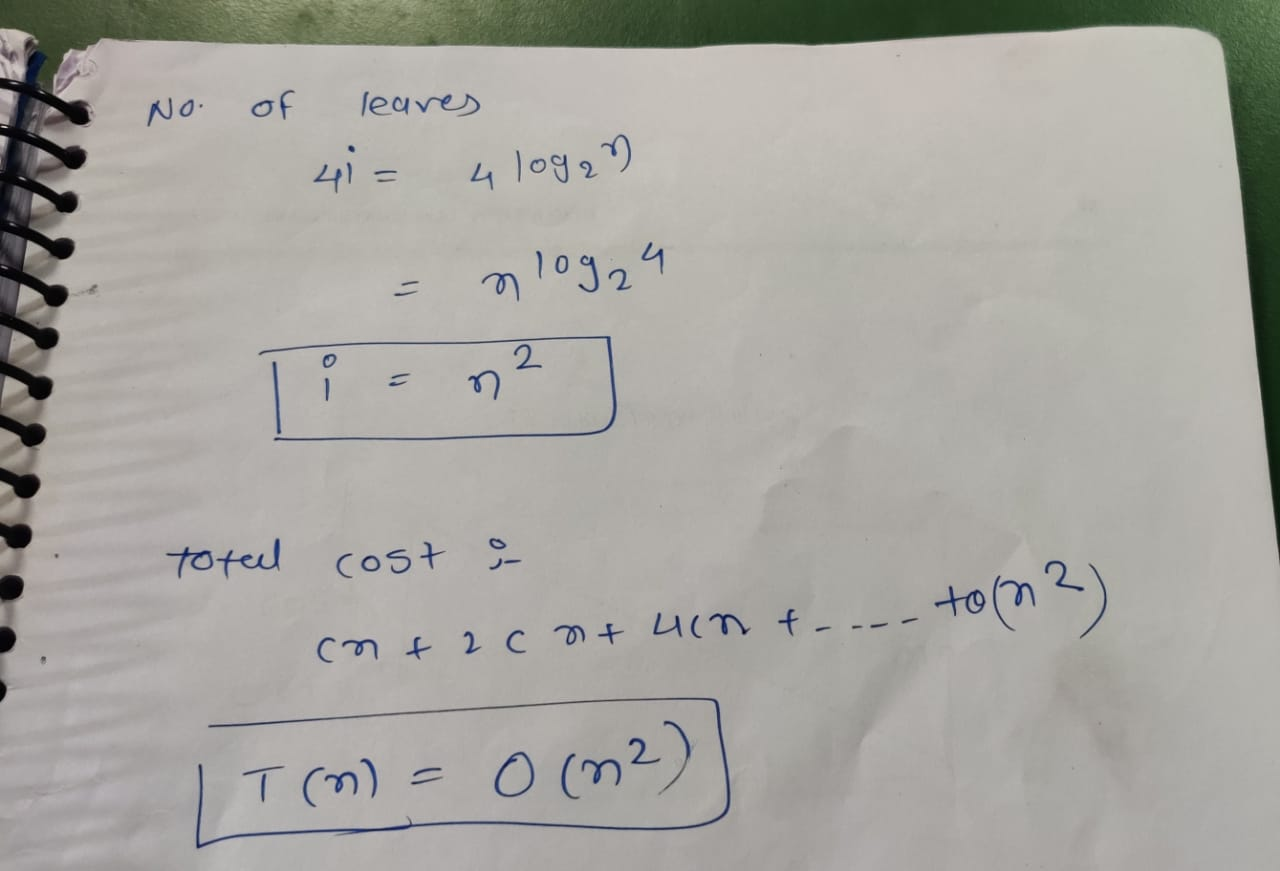 No. of leaves
4i = 4 log₂ n
= n^log₂ 4
i = n²
total cost :-
cn + 2 c n + 4cn + ---- to(n²)
T(n) = O(n²)